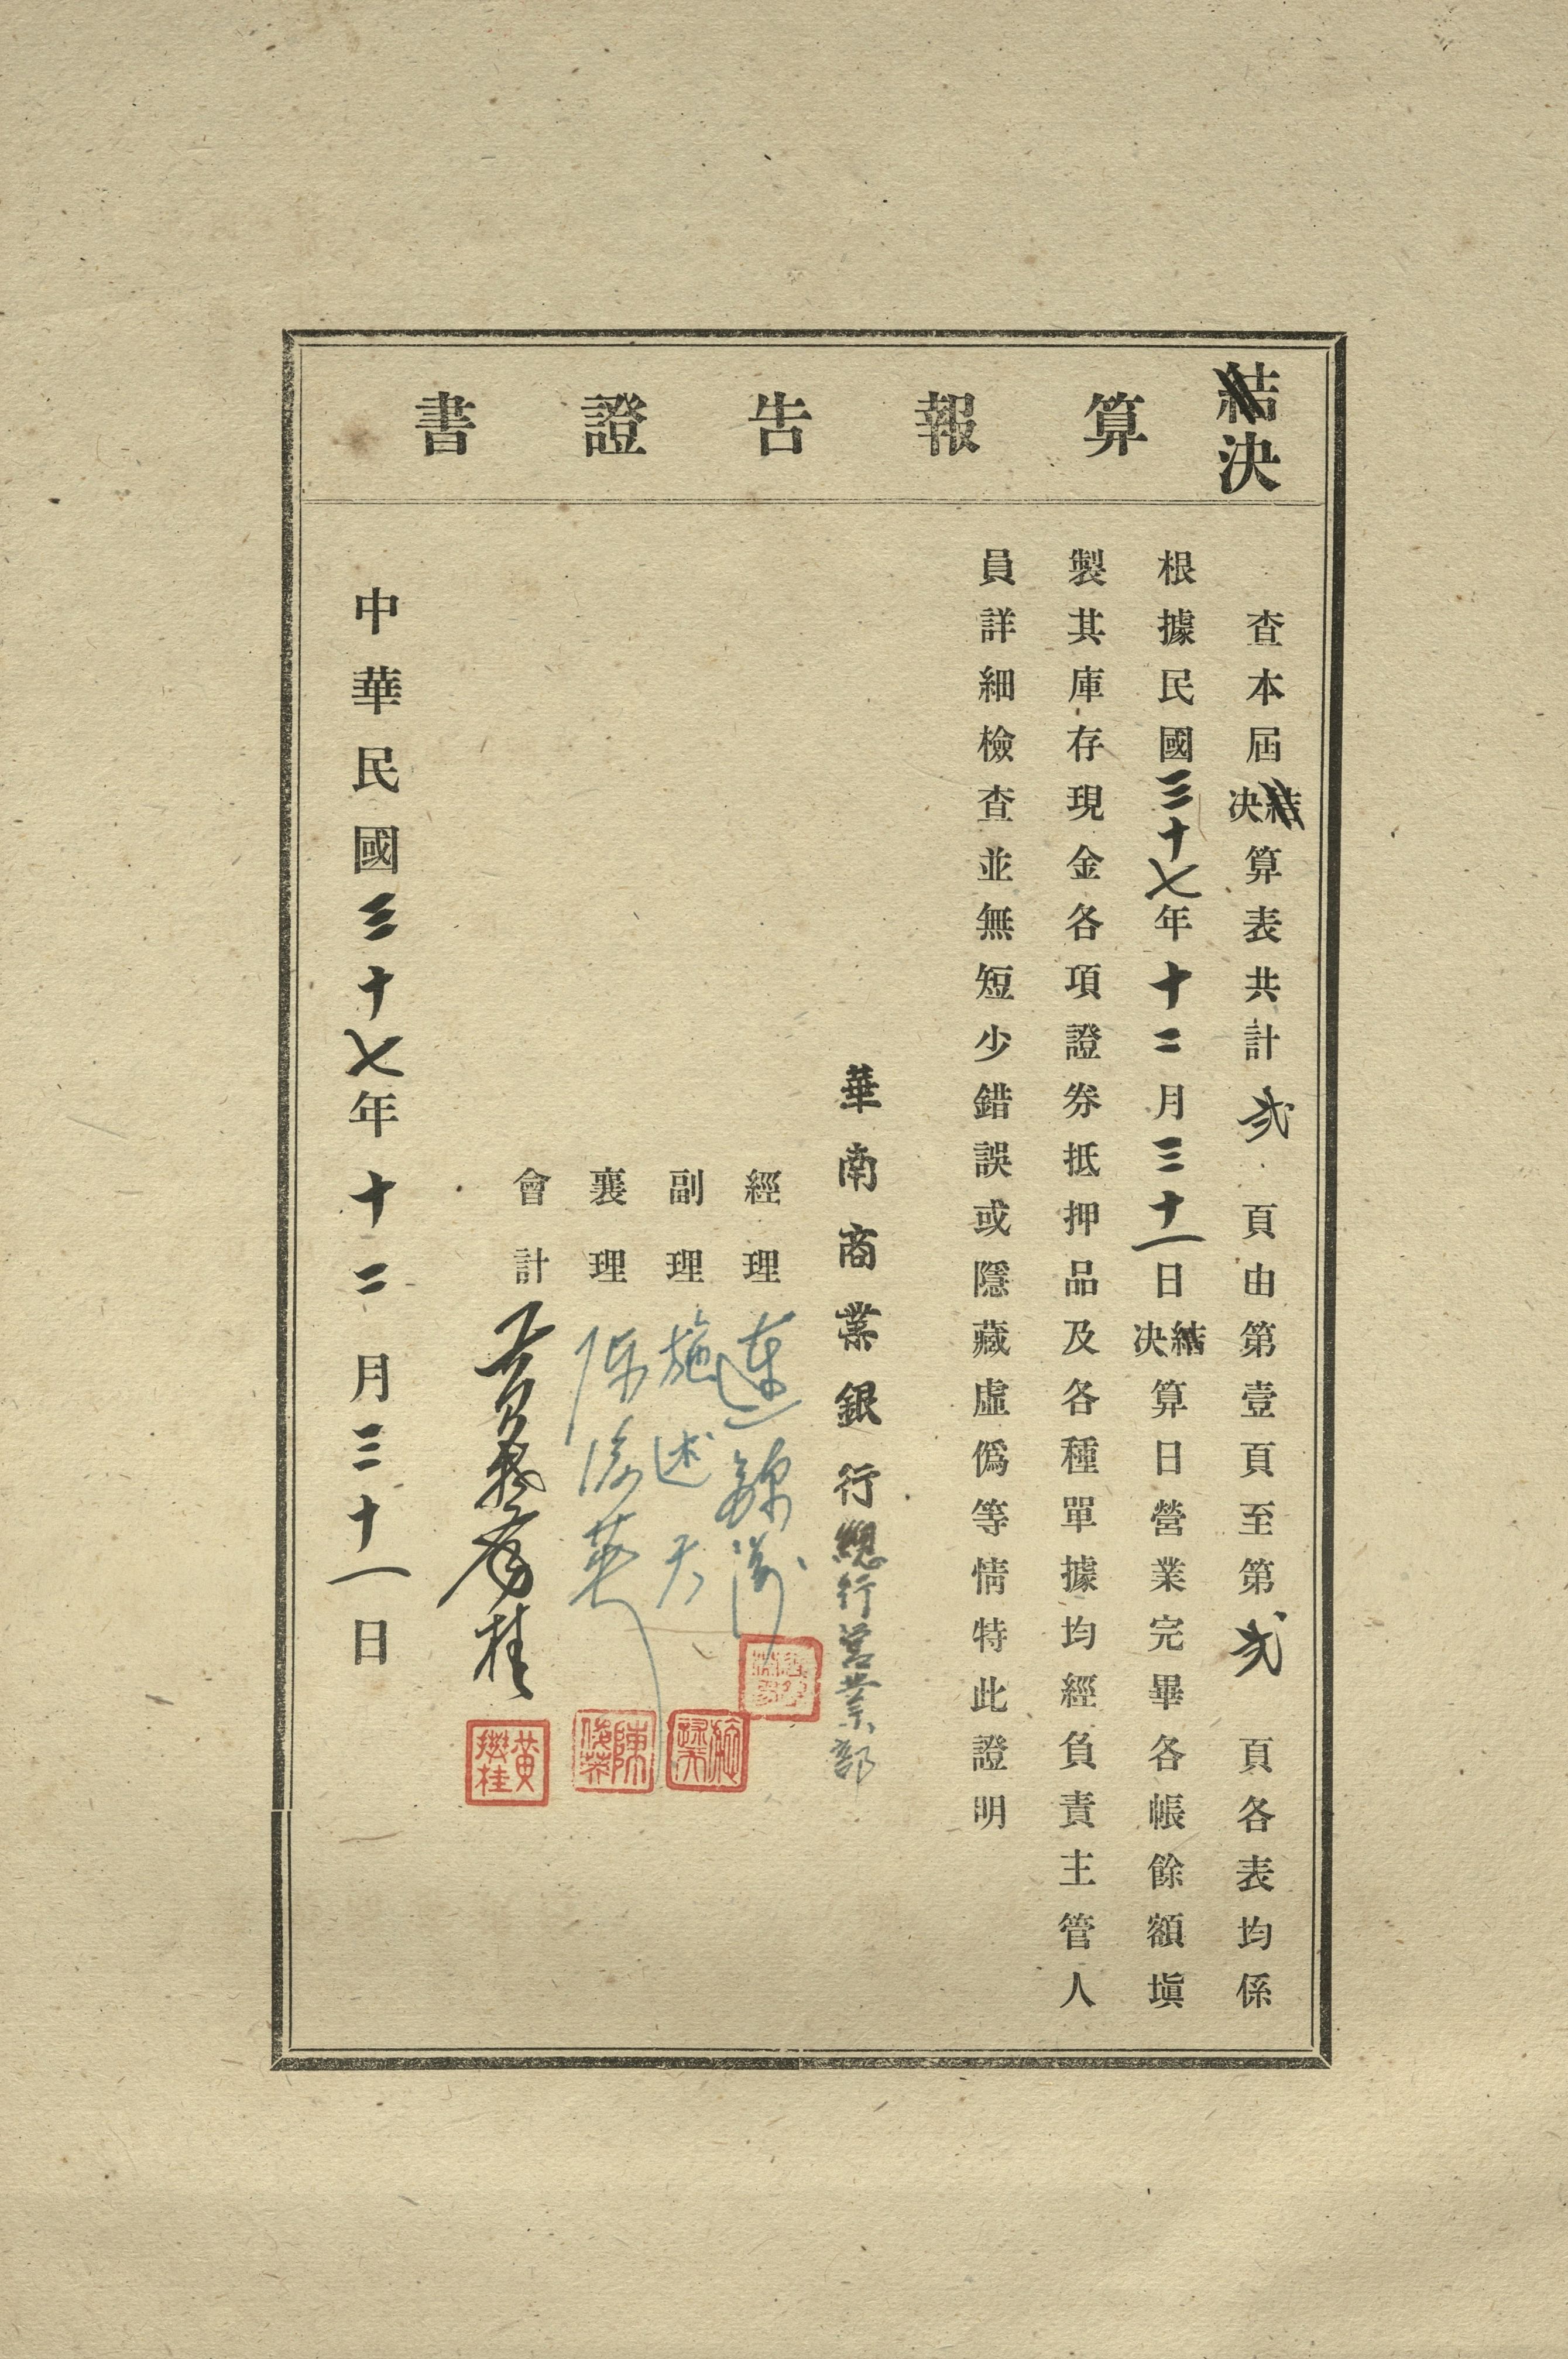 結決算報告證書
查本屆結決算表共計弍頁由第壹頁至第弍頁各表均係
根據民國三十七年十二月三十一日結決算日營業完畢各帳餘額塡
製其庫存現金各項證券抵押品及各種單據均經負責主管人
員詳細檢查並無短少錯誤或隱藏虛僞等情特此證明
華南商業銀行總行営業部
經理
副理 施述天
襄理 陳俊英
會計 黃樊桂
施述天
陳俊英
黃樊桂
中華民國三十七年十二月三十一日